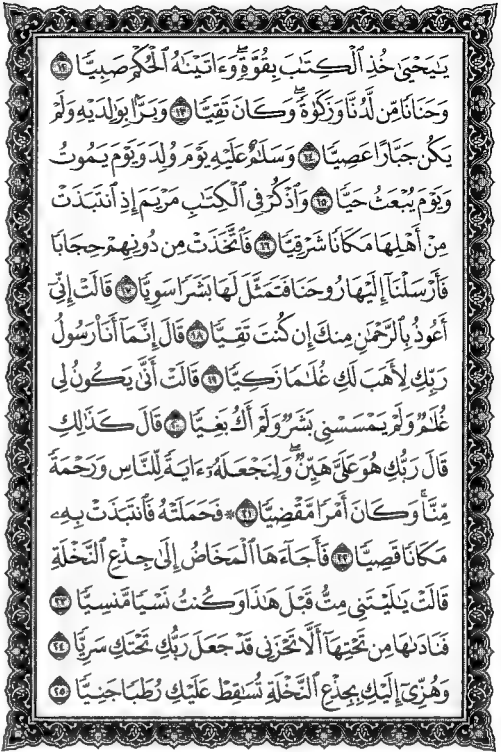 يَٰيَحْيَىٰ خُذِ ٱلْكِتَٰبَ بِقُوَّةٍۖ وَءَاتَيْنَٰهُ ٱلْحُكْمَ صَبِيًّا ١٢
وَحَنَانًا مِّن لَّدُنَّا وَزَكَوٰةًۖ وَكَانَ تَقِيًّا ١٣ وَبَرًّۢا بِوَٰلِدَيْهِ وَلَمْ
يَكُن جَبَّارًا عَصِيًّا ١٤ وَسَلَٰمٌ عَلَيْهِ يَوْمَ وُلِدَ وَيَوْمَ يَمُوتُ
وَيَوْمَ يُبْعَثُ حَيًّا ١٥ وَٱذْكُرْ فِى ٱلْكِتَٰبِ مَرْيَمَ إِذِ ٱنتَبَذَتْ
مِنْ أَهْلِهَا مَكَانًا شَرْقِيًّا ١٦ فَٱتَّخَذَتْ مِن دُونِهِمْ حِجَابًا
فَأَرْسَلْنَآ إِلَيْهَا رُوحَنَا فَتَمَثَّلَ لَهَا بَشَرًا سَوِيًّا ١٧ قَالَتْ إِنِّىٓ
أَعُوذُ بِٱلرَّحْمَٰنِ مِنكَ إِن كُنتَ تَقِيًّا ١٨ قَالَ إِنَّمَآ أَنَا۠ رَسُولُ
رَبِّكِ لِأَهَبَ لَكِ غُلَٰمًا زَكِيًّا ١٩ قَالَتْ أَنَّىٰ يَكُونُ لِى
غُلَٰمٌ وَلَمْ يَمْسَسْنِى بَشَرٌ وَلَمْ أَكُ بَغِيًّا ٢٠ قَالَ كَذَٰلِكِ
قَالَ رَبُّكِ هُوَ عَلَىَّ هَيِّنٌۖ وَلِنَجْعَلَهُۥٓ ءَايَةً لِّلنَّاسِ وَرَحْمَةً
مِّنَّاۚ وَكَانَ أَمْرًا مَّقْضِيًّا ٢١ ۞ فَحَمَلَتْهُ فَٱنتَبَذَتْ بِهِۦ
مَكَانًا قَصِيًّا ٢٢ فَأَجَآءَهَا ٱلْمَخَاضُ إِلَىٰ جِذْعِ ٱلنَّخْلَةِ
قَالَتْ يَٰلَيْتَنِى مِتُّ قَبْلَ هَٰذَا وَكُنتُ نَسْيًا مَّنسِيًّا ٢٣
فَنَادَىٰهَا مِن تَحْتِهَآ أَلَّا تَحْزَنِى قَدْ جَعَلَ رَبُّكِ تَحْتَكِ سَرِيًّا ٢٤
وَهُزِّىٓ إِلَيْكِ بِجِذْعِ ٱلنَّخْلَةِ تُسَٰقِطْ عَلَيْكِ رُطَبًا جَنِيًّا ٢٥